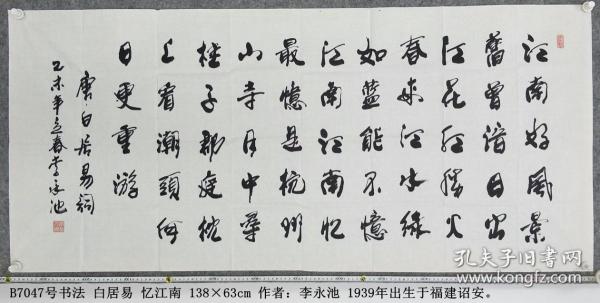 江南好風景
舊曾諳日出
江花紅勝火
春來江水緑
如藍能不憶
江南江南忆
最憶是杭州
山寺月中尋
桂子郡庭枕
上看潮頭何
日更重游
唐·白居易詞
乙未年立春李永池
孔夫子旧书网
B7047号书法 白居易 忆江南 138×63cm 作者：李永池 1939年出生于福建诏安。